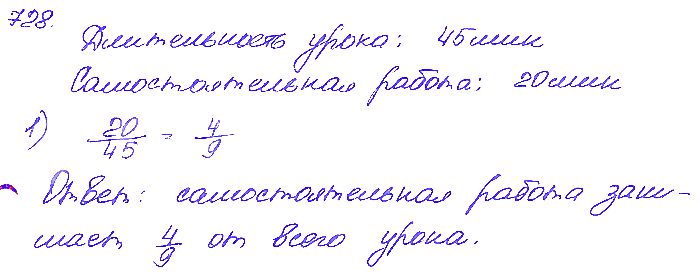 728.
Длительность урока: 45 мин
Самостоятельная работа: 20 мин
1) 20/45 = 4/9
Ответ: самостоятельная работа зани-
мает 4/9 от всего урока.